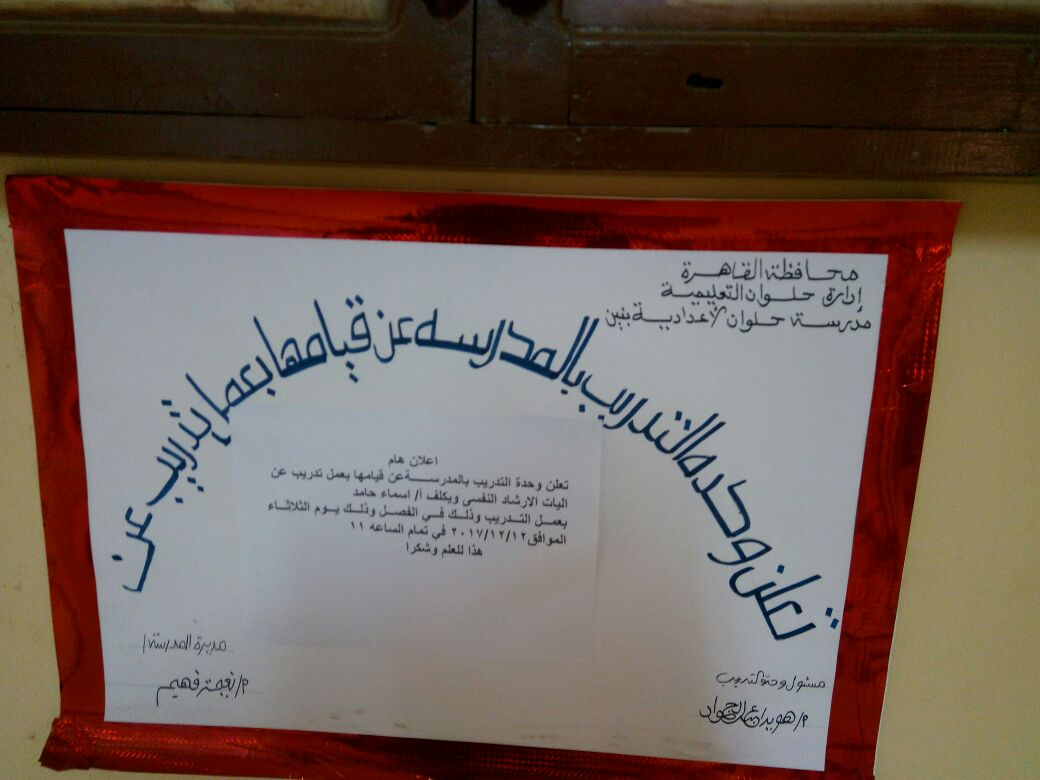 محافظة القاهرة
إدارة حلوان التعليمية
مدرسة حلوان الاعدادية بنين
تعلن وحده التدريب بالمدرسه عن قيامها بعمل تدريب عن
اعلان هام
تعلن وحدة التدريب بالمدرسة عن قيامها بعمل تدريب عن
اليات الارشاد النفسى ويكلف أ/ اسماء حامد
بعمل التدريب وذلك في الفصل وذلك يوم الثلاثاء
الموافق ٢٠١٧/١٢/١٢ في تمام الساعه ١١
هذا للعلم وشكرا
مسئول وحدة التدريب
م/ هويدا عبد الجواد
مديرة المدرسة/
م/ فهيم